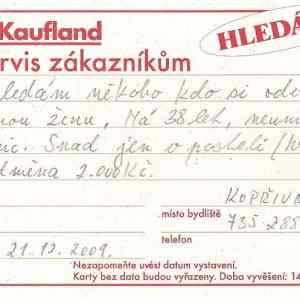 Kaufland
HLEDÁ
rvis zákazníkům
ledám někoho kdo si odv
nou ženu. Má 38 let, neum
nic. Snad jen v posteli
dměna 2.000Kč.
KOPŘIVN
místo bydliště
735 285
telefon
21.12.2009.
Nezapomeňte uvést datum vystavení.
Karty bez data budou vyřazeny. Doba vyvěšení: 14